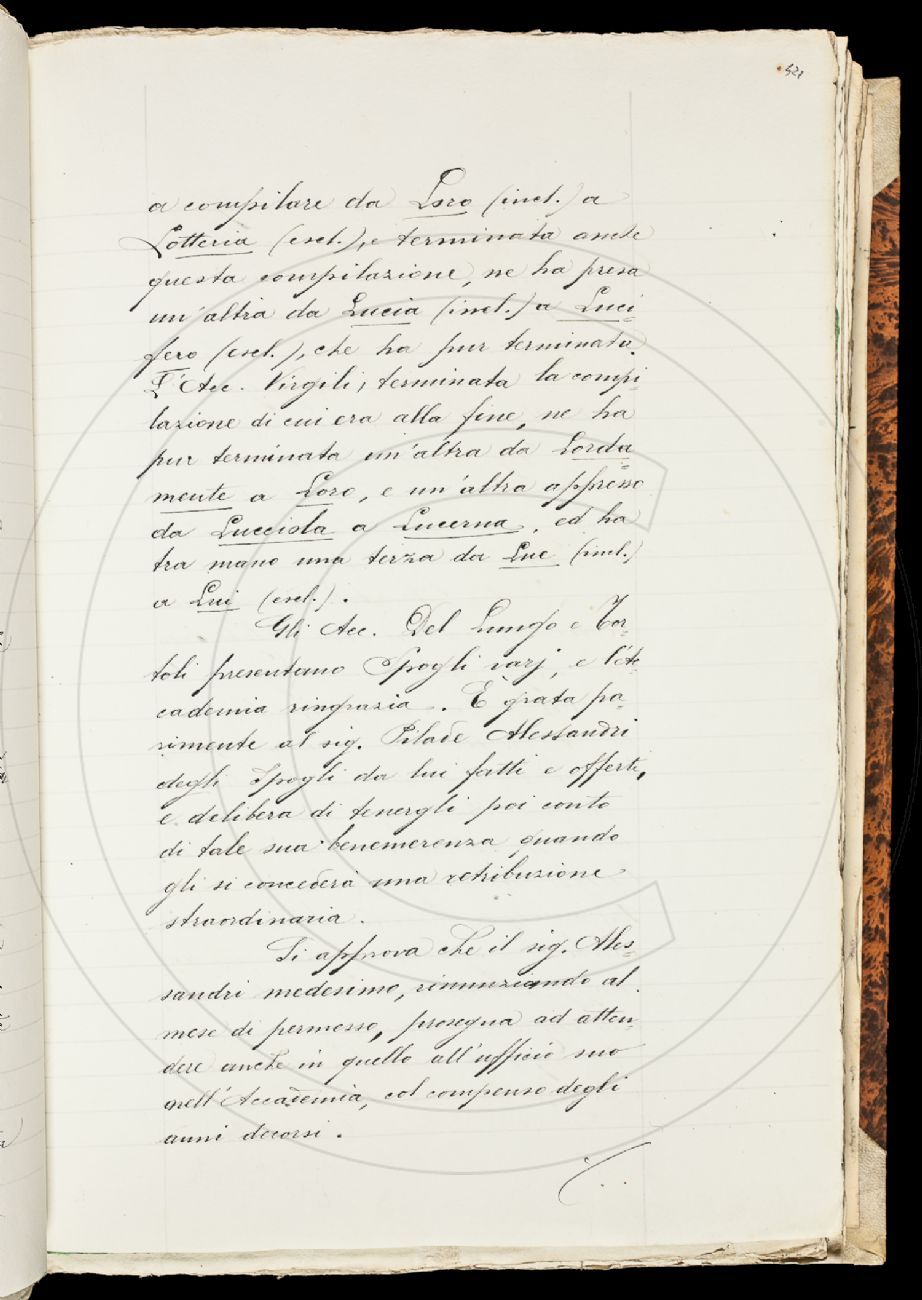 521
a compilare da Loro (incl.) a
Lotteria (escl.), e terminata anche
questa compilazione, ne ha presa
un'altra da Lucia (incl.) a Luci=
fero (escl.), che ha pur terminato.
L'Acc. Virgilj, terminata la compi=
lazione di cui era alla fine, ne ha
pur terminata un'altra da Lorda=
mente a Loro, e un'altra appresso
da Lucciola a Lucerna, ed ha
tra mano una terza da Luc (incl.)
a Lui (escl.).
Gli Acc. Del Lungo e Tor=
toli presentano Spogli varj, e l'Ac=
cademia ringrazia. È grata pa=
rimente al sig. Pilade Alessandri
degli Spogli da lui fatti e offerti,
e delibera di tenergli poi conto
di tale sua benemerenza quando
gli si concederà una retribuzione
straordinaria.
Si approva che il sig. Ales=
sandri medesimo, rinunziando al
mese di permesso, prosegua ad atten=
dere anche in quello all'ufficio suo
nell'Accademia, col compenso degli
anni decorsi.